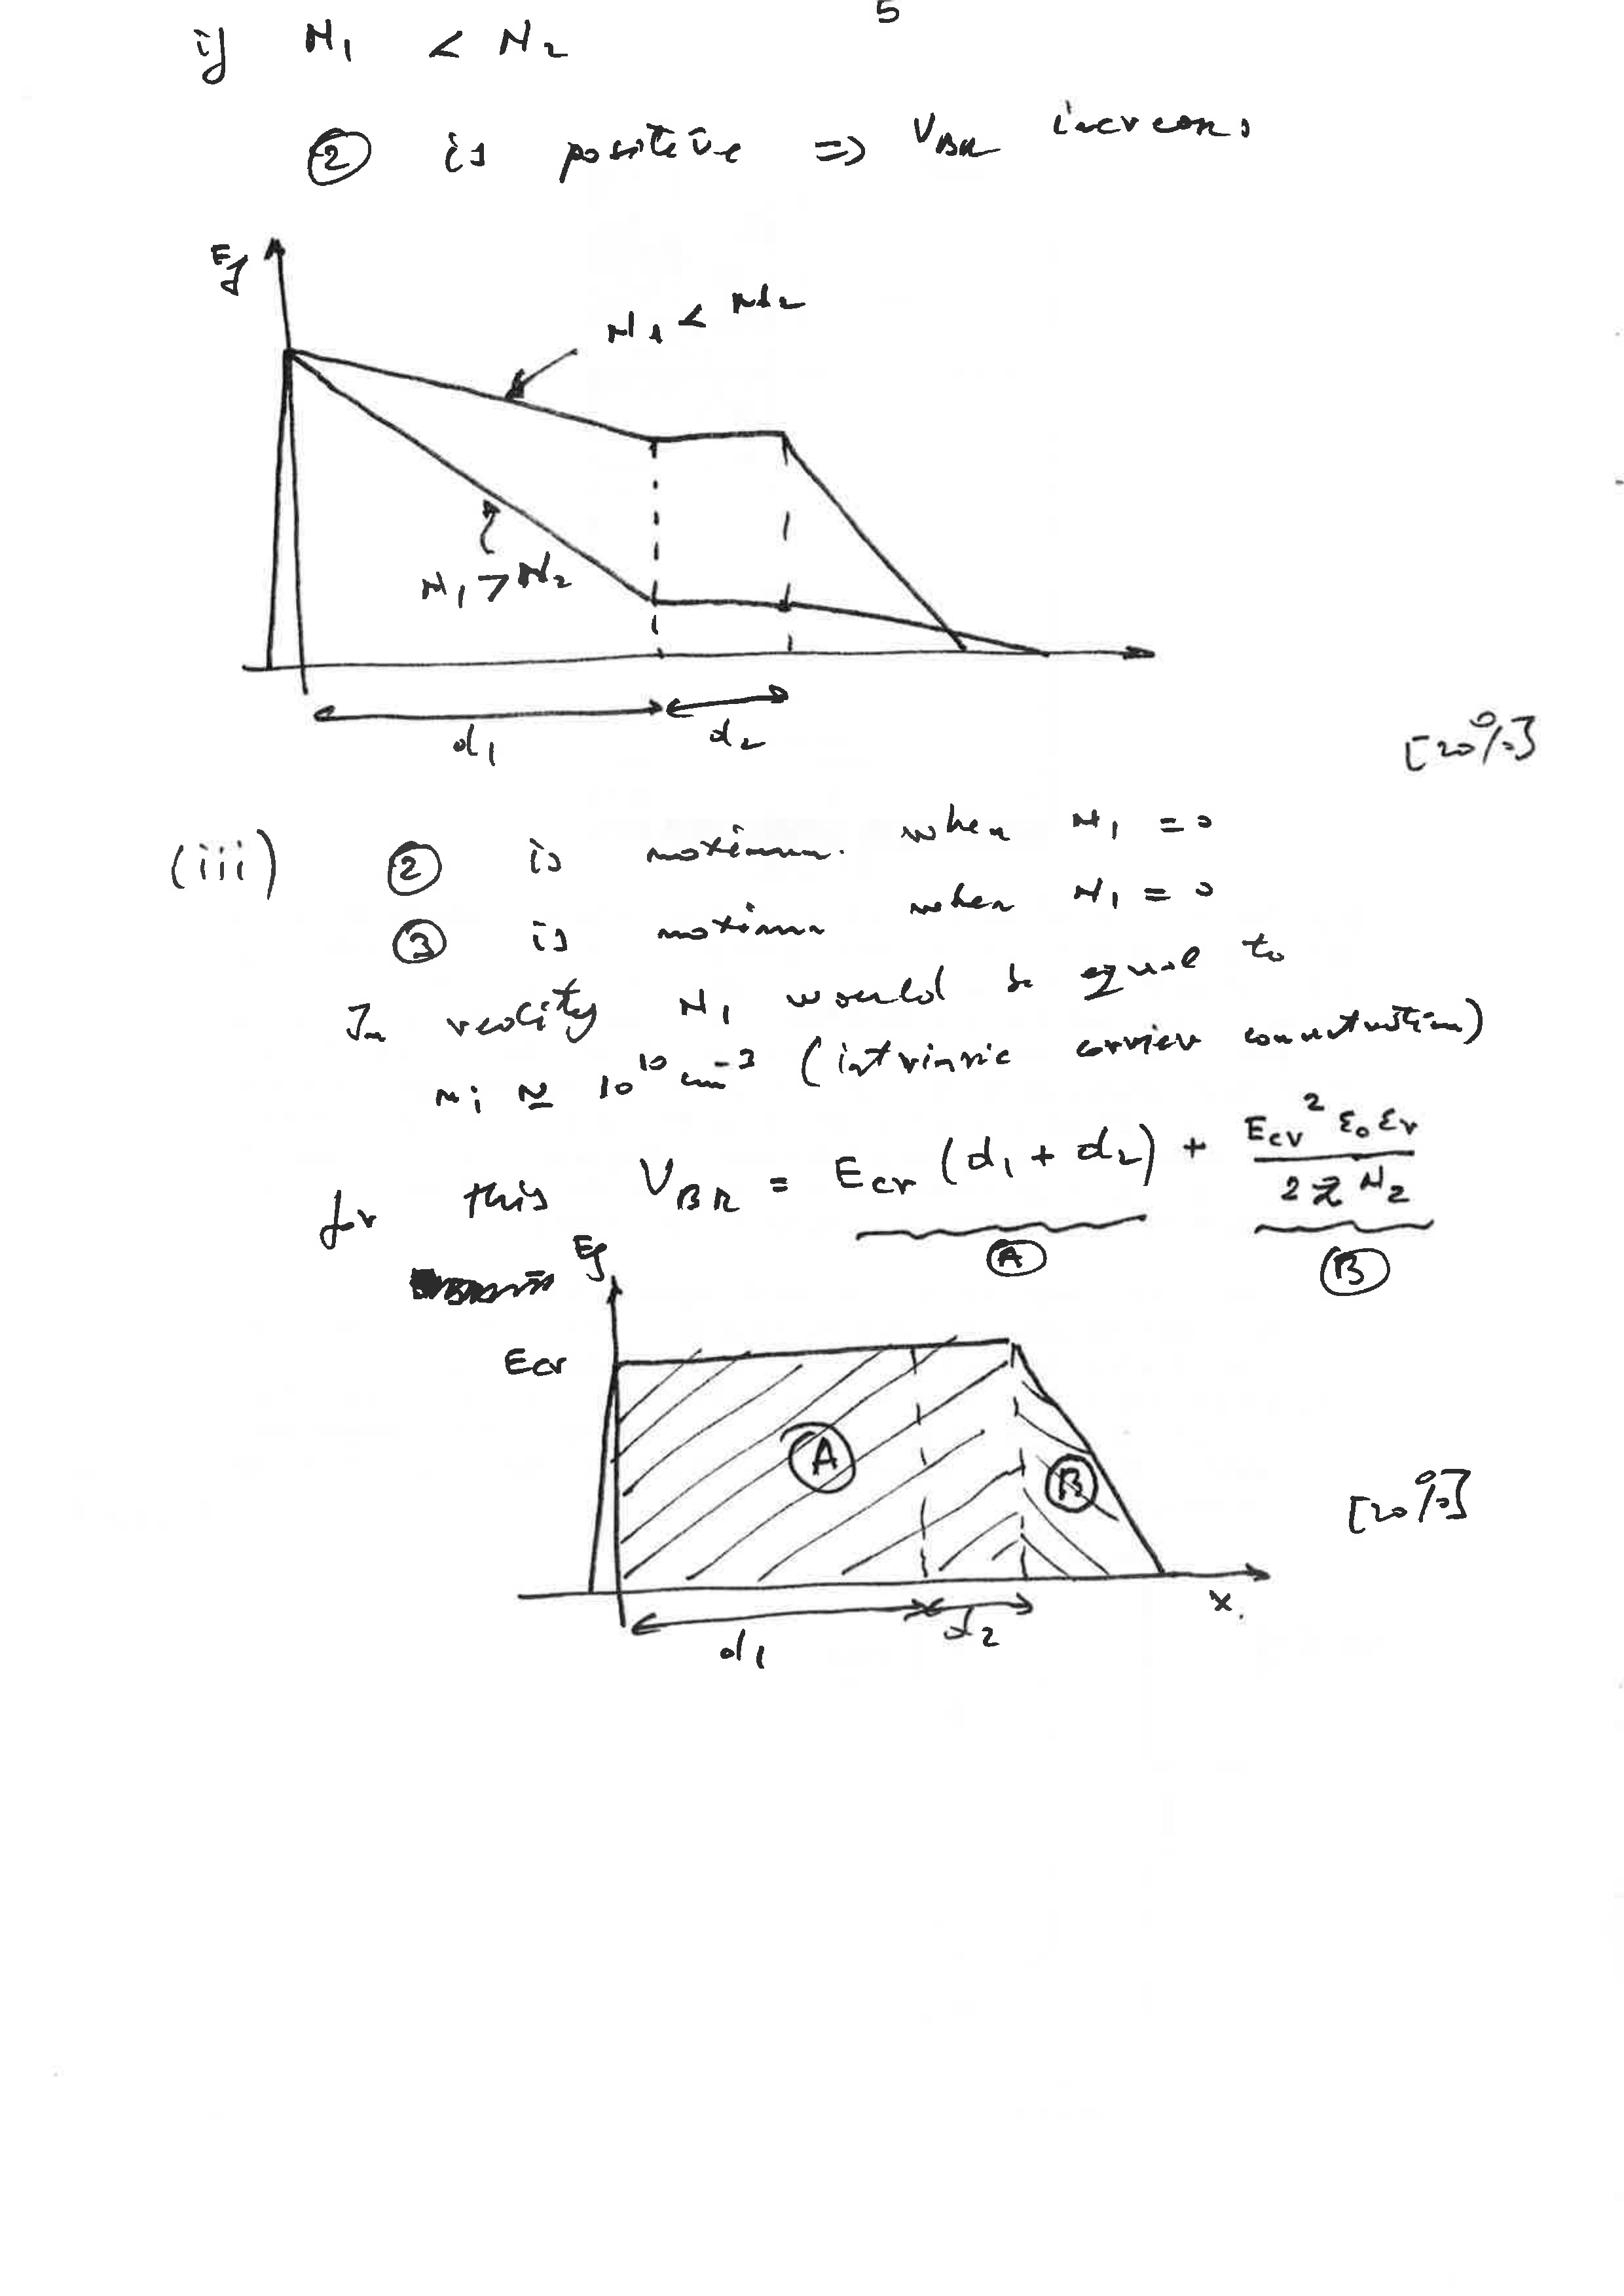 5
if N₁ < N₂
② is positive => V_BR increases
Ef
N₁ < Nd₂
N₁ > N₂
d₁ d₂
[20%]
(iii) ② is maximum. when N₁ = 0
③ is maximum when N₁ = 0
In reality N₁ would be equal to
nᵢ ≃ 10¹⁰ cm⁻³ (intrinsic carrier concentration)
for this V_BR = Ecr (d₁ + d₂) + Ecr² ε₀ εr / 2 q N₂
Ⓐ Ⓑ
Ef
Ecr
Ⓐ Ⓑ
[20%]
x.
d₁ d₂